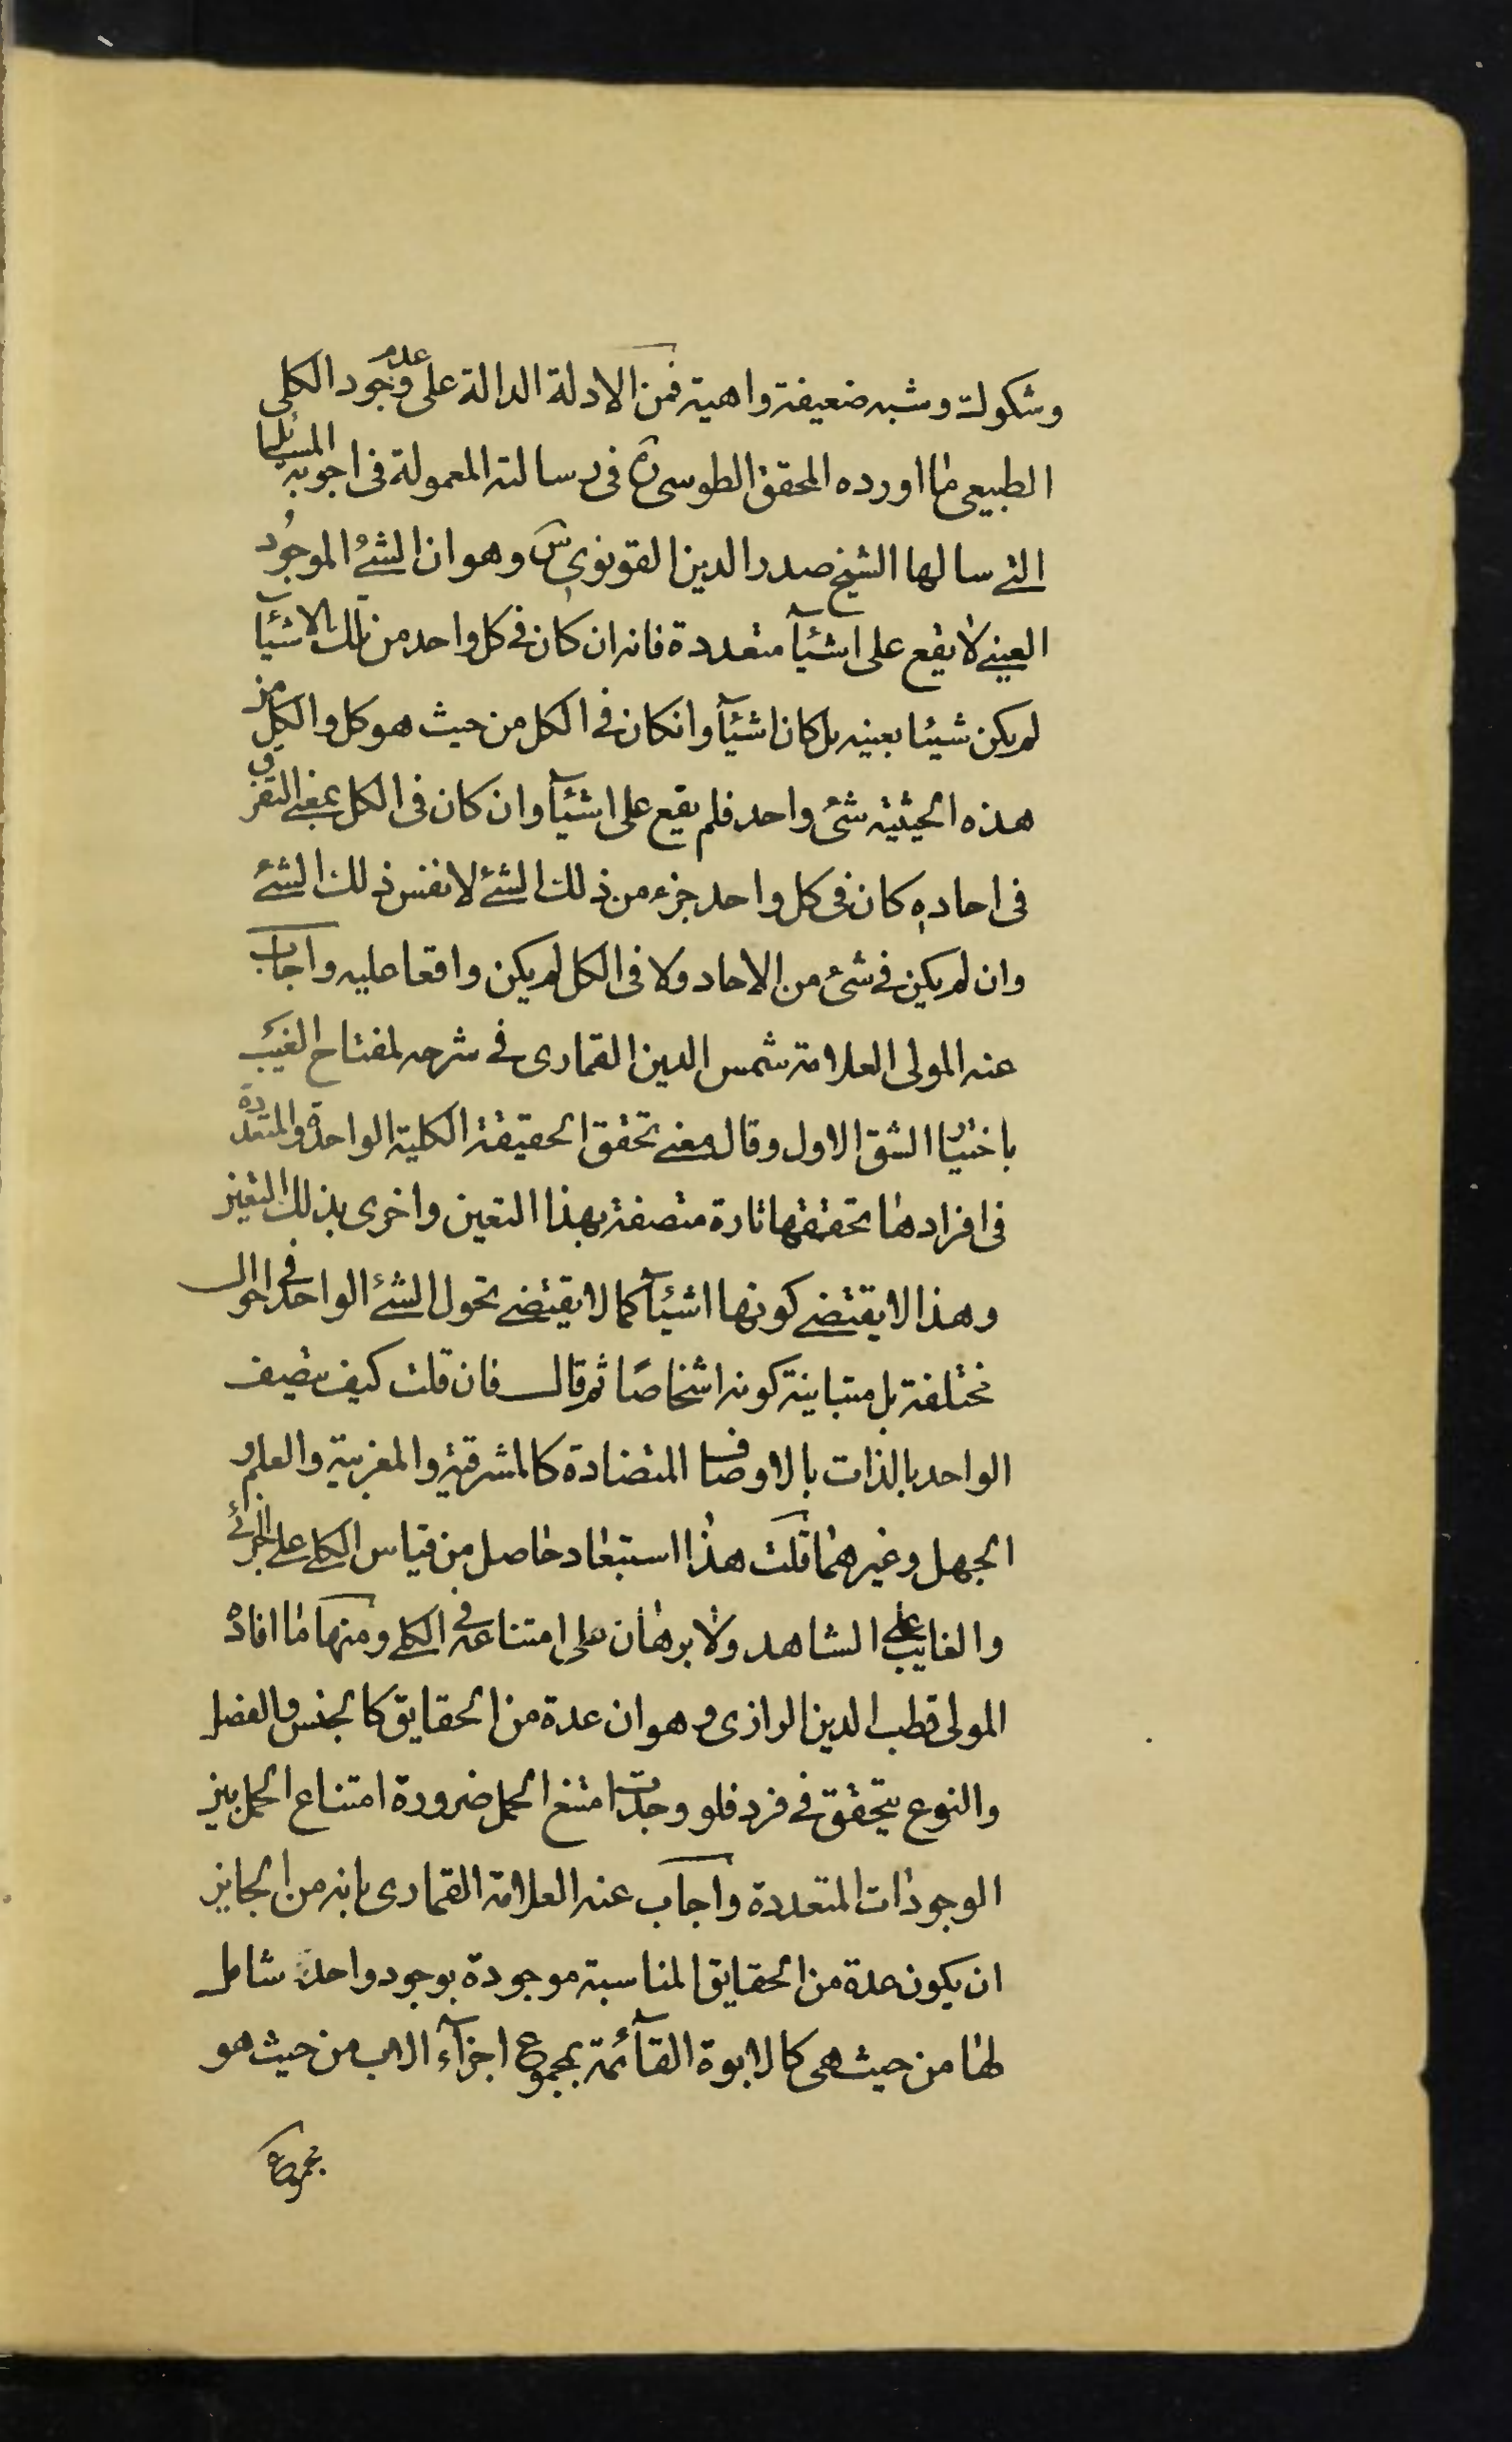 وشكوك وشبه ضعيفة واهية فمن الادلة الدالة على عدم وجود الكلى
الطبيعى ما اورده المحقق الطوسى ره فى رسالته المعمولة فى اجوبة المسايل
التى سالها الشيخ صدر الدين القونوى س وهو ان الشئ الموجود
العينى لا يقع على اشيآ متعددة فانه ان كان فى كل واحد من تلك الاشيآ
لم يكن شيئا بعينه بل كان اشيآ وانكان فى الكل من حيث هو كل والكل من
هذه الحيثية شئ واحد فلم يقع على اشيآ وان كان فى الكل بمعنى التفرق
فى احاده كان فى كل واحد جزء من ذلك الشئ لا نفس ذلك الشئ
وان لم يكن فى شئ من الاحاد ولا فى الكل لم يكن واقعا عليه واجاب
عنه المولى العلامة شمس الدين القمارى فى شرحه لمفتاح الغيب
باختيار الشق الاول وقال معنى تحقق الحقيقة الكلية الواحدة والمتعددة
فى افرادها تحققها تارة متصفة بهذا التعين واخرى بذلك التعين
وهذا لا يقتضى كونها اشيآ كما لا يقتضى تحول الشئ الواحد فى احوال
مختلفة بل متباينة كونه اشخاصًا ثم قال فان قلت كيف يتصف
الواحد بالذات بالاوصاف المتضادة كالمشرقية والمغربية والعلم و
الجهل وغيرهما قلت هذا استبعاد حاصل من قياس الكلى على الجزئى
والغايب على الشاهد ولا برهان على امتناعه فى الكلى ومنها ما افاده
المولى قطب الدين الرازى وهو ان عدة من الحقايق كالجنس والفصل
والنوع يتحقق فى فرد فلو وجدت امتنع الحمل ضرورة امتناع الحمل بين
الوجودات المتعددة واجاب عنه العلامة القمارى بانه من الجايز
ان يكون عدة من الحقايق المناسبة موجودة بوجود واحد شامل
لها من حيث هى كالابوة القآئمة بمجموع اجزآء الاب من حيث هو
مجموع